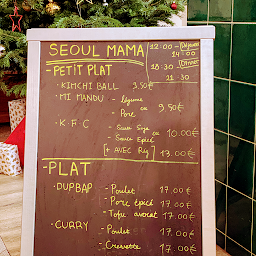 SEOUL MAMA
12:00 - Déjeuner
14:00
18:30 - Dinner
21:30
- PETIT PLAT
· KIMCHI BALL 3.50€
· MI MANDU - légume
- Porc ou 9.50€
· K.F.C - Sauce Soja
- Sauce Épicé ou 10.00€
[+ AVEC Riz] 13.00€
- PLAT
· DUPBAP - Poulet 17.00€
- Porc épicé 17.00€
- Tofu avocat 17.00€
· CURRY - Poulet 17.00€
- Crevette 17.00€